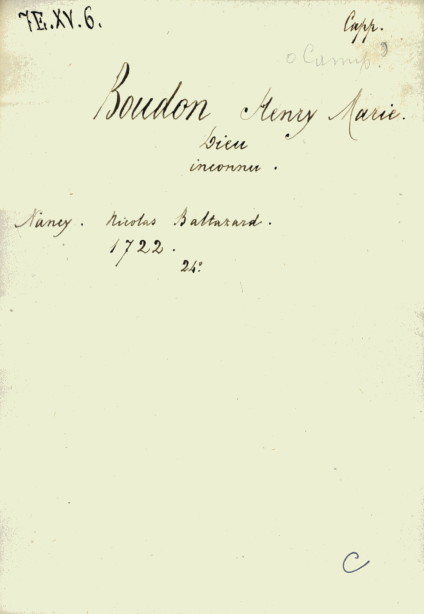 7E.XV.6.
Capp.
Boudon Henry Marie.
Dieu
inconnu.
Nancy. Nicolas Baltazard.
1722.
24°
C